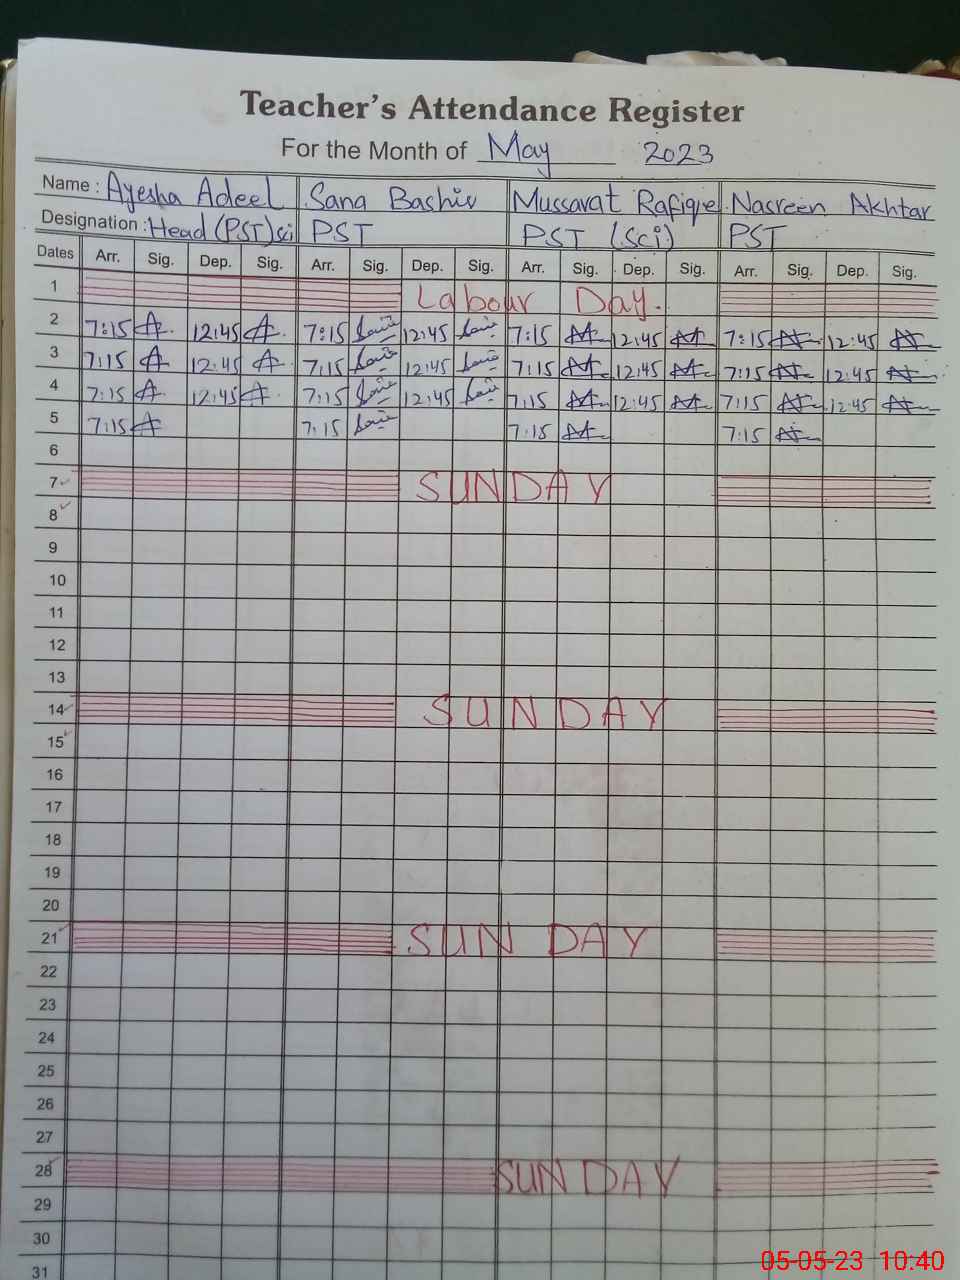 Teacher's Attendance Register
For the Month of May 2023
Name : Ayesha Adeel Sana Bashir Mussarat Rafique Nasreen Akhtar
Designation : Head (PST) sci PST PST (Sci) PST
Dates Arr. Sig. Dep. Sig. Arr. Sig. Dep. Sig. Arr. Sig. Dep. Sig. Arr. Sig. Dep. Sig.
1 Labour Day.
2 7:15 12:45 7:15 12:45 7:15 12:45 7:15 12:45
3 7:15 12:45 7:15 12:45 7:15 12:45 7:15 12:45
4 7:15 12:45 7:15 12:45 7:15 12:45 7:15 12:45
5 7:15 7:15 7:15 7:15
6
7 SUNDAY
8
9
10
11
12
13
14 SUNDAY
15
16
17
18
19
20
21 SUNDAY
22
23
24
25
26
27
28 SUNDAY
29
30
31
05-05-23 10:40